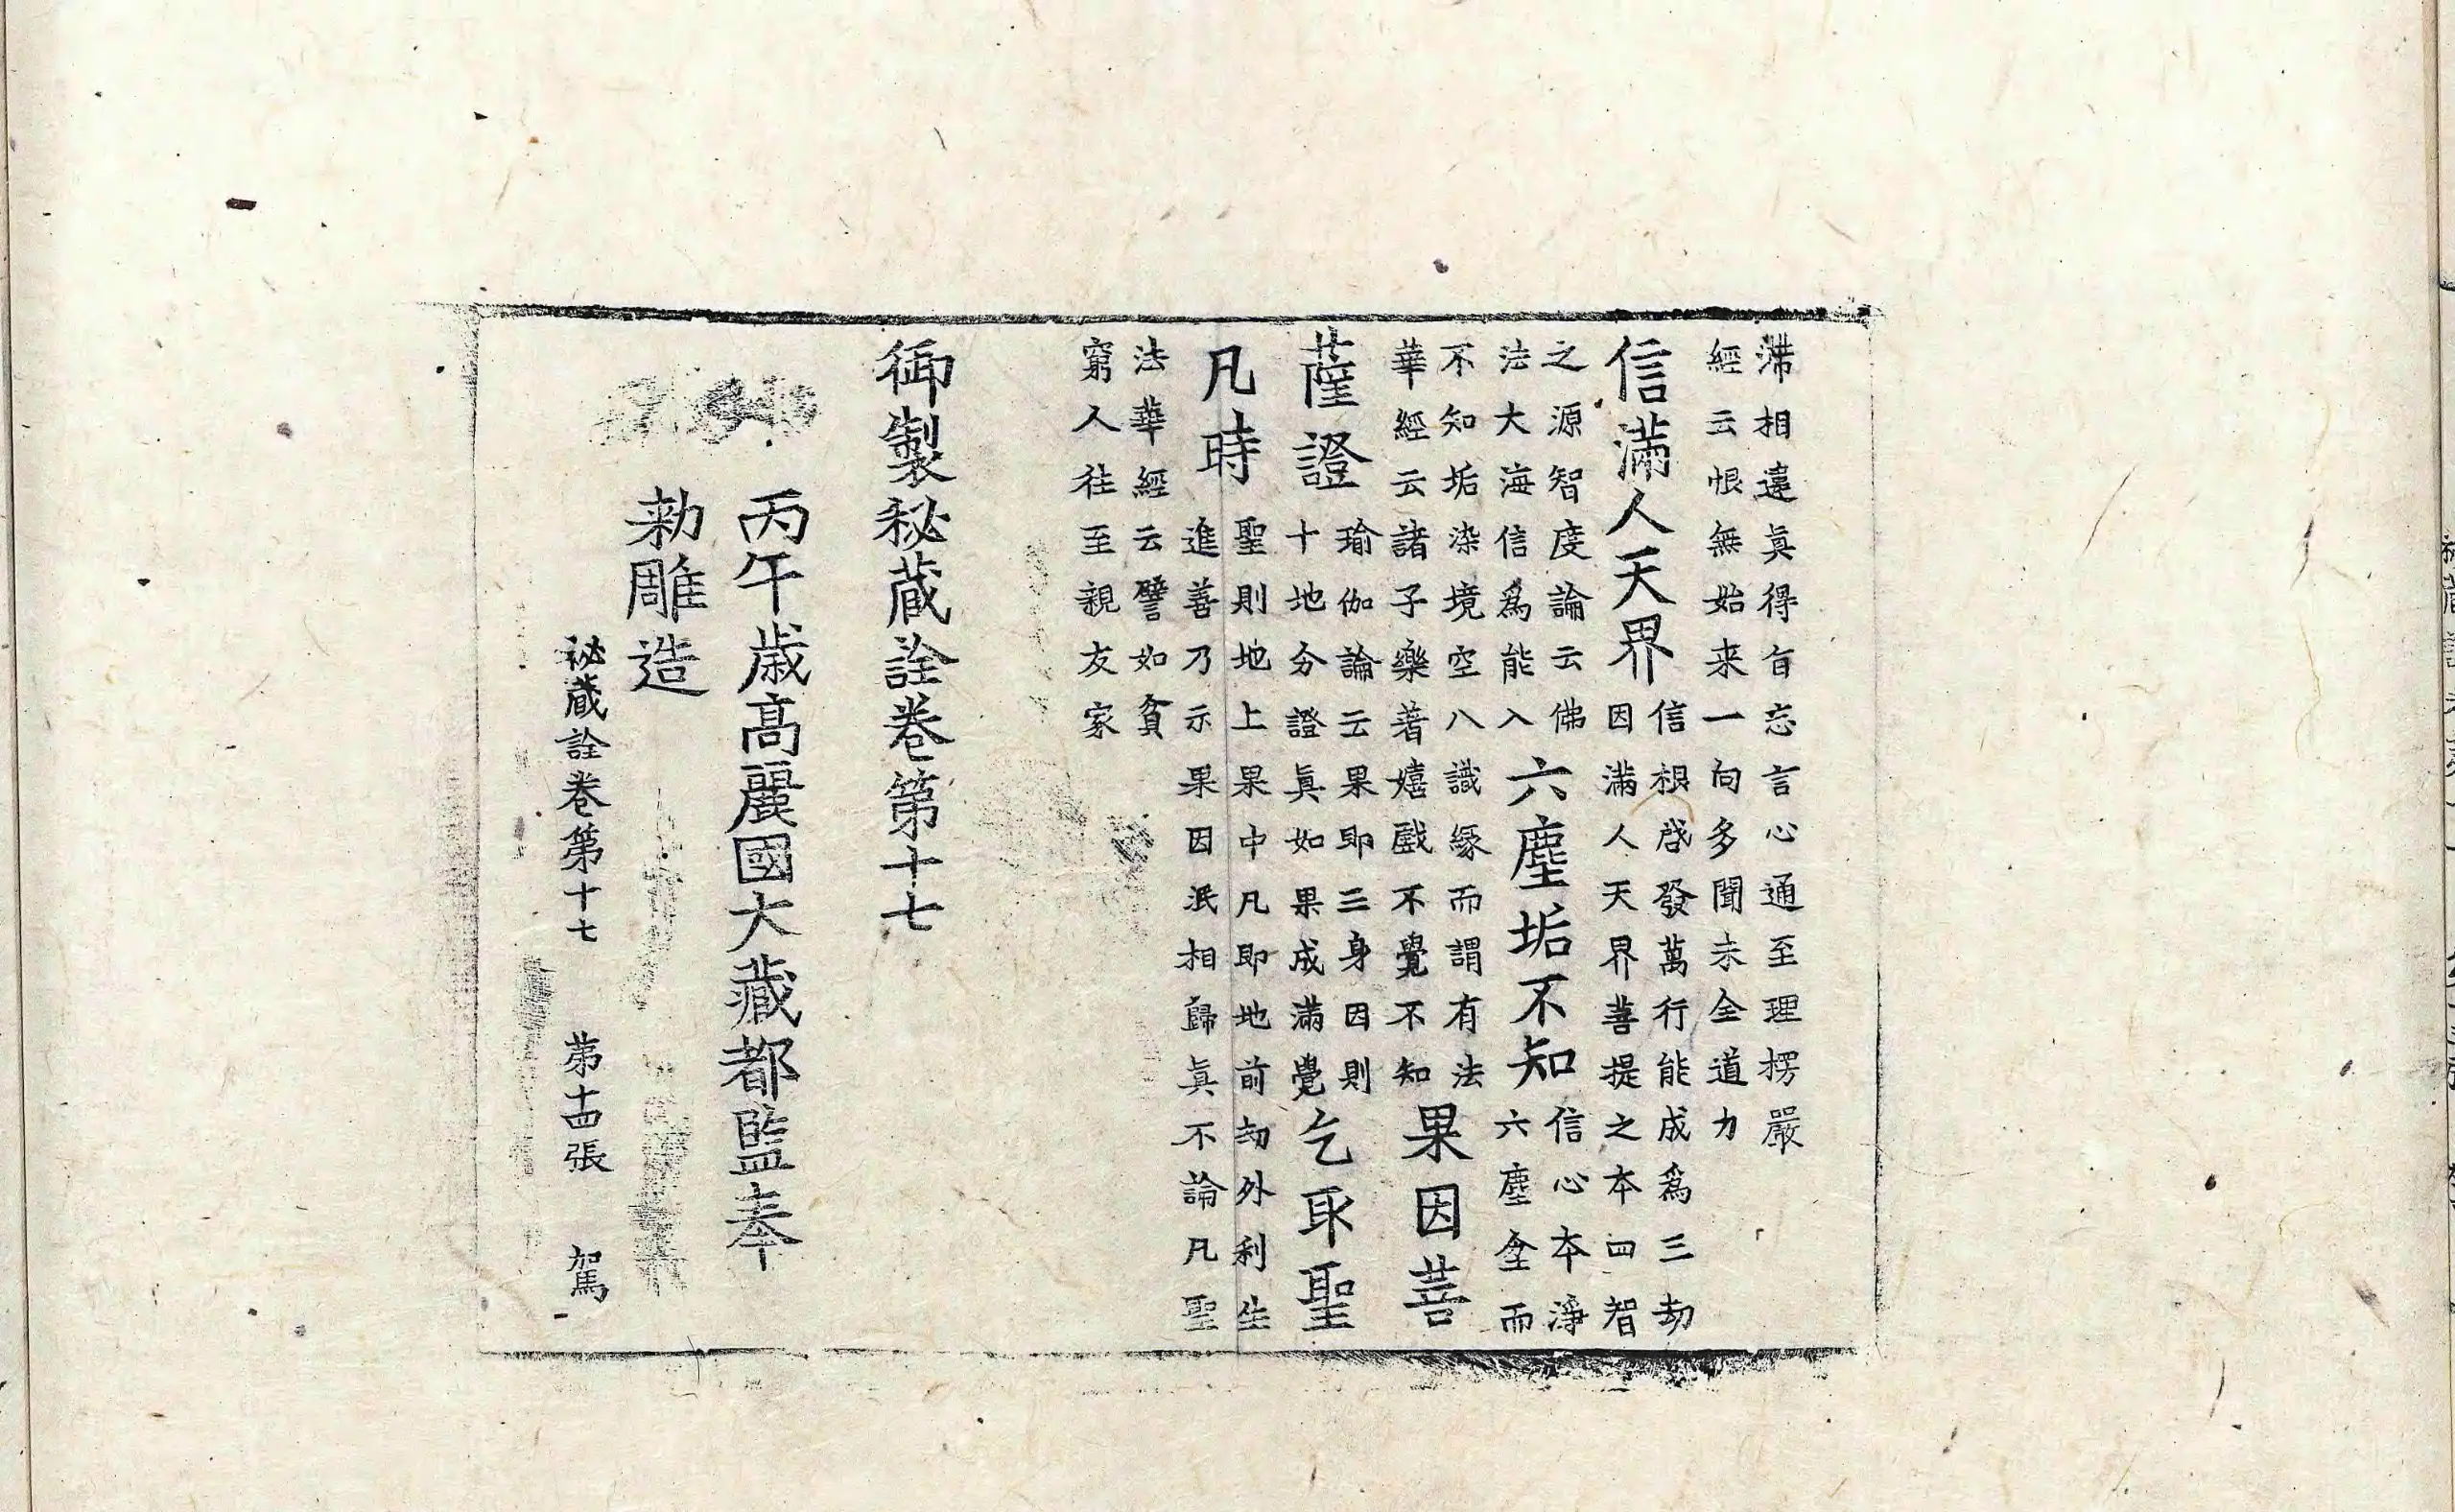 滯相違眞得旨忘言心通至理楞嚴
經云恨無始来一向多聞未全道力
信滿人天界
信根啓發萬行能成爲三劫
因滿人天界菩提之本四智
之源智度論云佛
法大海信爲能入
六塵垢不知
信心本淨
六塵全而
不知垢染境空八識緣而謂有法
華經云諸子樂著嬉戲不覺不知
果因菩
薩證
瑜伽論云果即三身因則
十地分證眞如果成滿覺
乞取聖
凡時
聖則地上果中凡即地前劫外利生
進善乃示果因泯相歸眞不論凡聖
法華經云譬如貧
窮人往至親友家
御製秘蔵詮卷第十七
丙午歳高麗國大藏都監奉
勅雕造
祕蔵詮卷第十七 第十四張 駕